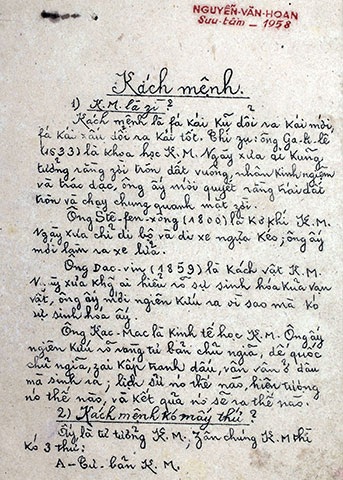 NGUYỄN-VĂN-HOAN
Sưu-tầm _ 1958
Kách mệnh.
1) K.M. là gì ?
Kách mệnh là fá kái kũ đổi ra kái mới,
fá kái xấu đổi ra kái tốt. Thí zụ: ông Ga-li-lê
(1633) là khoa học K.M. Ngày xưa ai kũng
tưởng rằng zời tròn đất vuông, nhân kinh ngiệm
và trắc đạc, ông ấy mới quyết rằng trái đất
tròn và chạy chung quanh mặt zời.
Ông Stê-fen-xông (1800) là kơ khí K.M.
Ngày xưa chỉ đi bộ và đi xe ngựa kéo; ông ấy
mới làm ra xe lửa.
Ông Đac-vin (1859) là kách vật K.M.
Ngày xưa khg ai hiểu rõ sự sinh hóa kủa vạn
vật, ông ấy mới ngiên kứu ra vì sao mà kó
sự sinh hóa ấy.
Ông Kac-Mac là kinh tế học K.M. Ông ấy
ngiên kứu rõ ràng tư bản chủ ngĩa, đế quốc
chủ ngĩa, zai kấp tranh đấu, vân vân ở đâu
mà sinh ra; lịch sử nó thế nào, hiện tượng
nó thế nào, và kết quả nó sẽ ra thế nào.
2) Kách mệnh kó mấy thứ ?
Ấy là tư tưởng K.M., Zân chúng K.M thì
kó 3 thứ:
A- Tư-bản K.M.